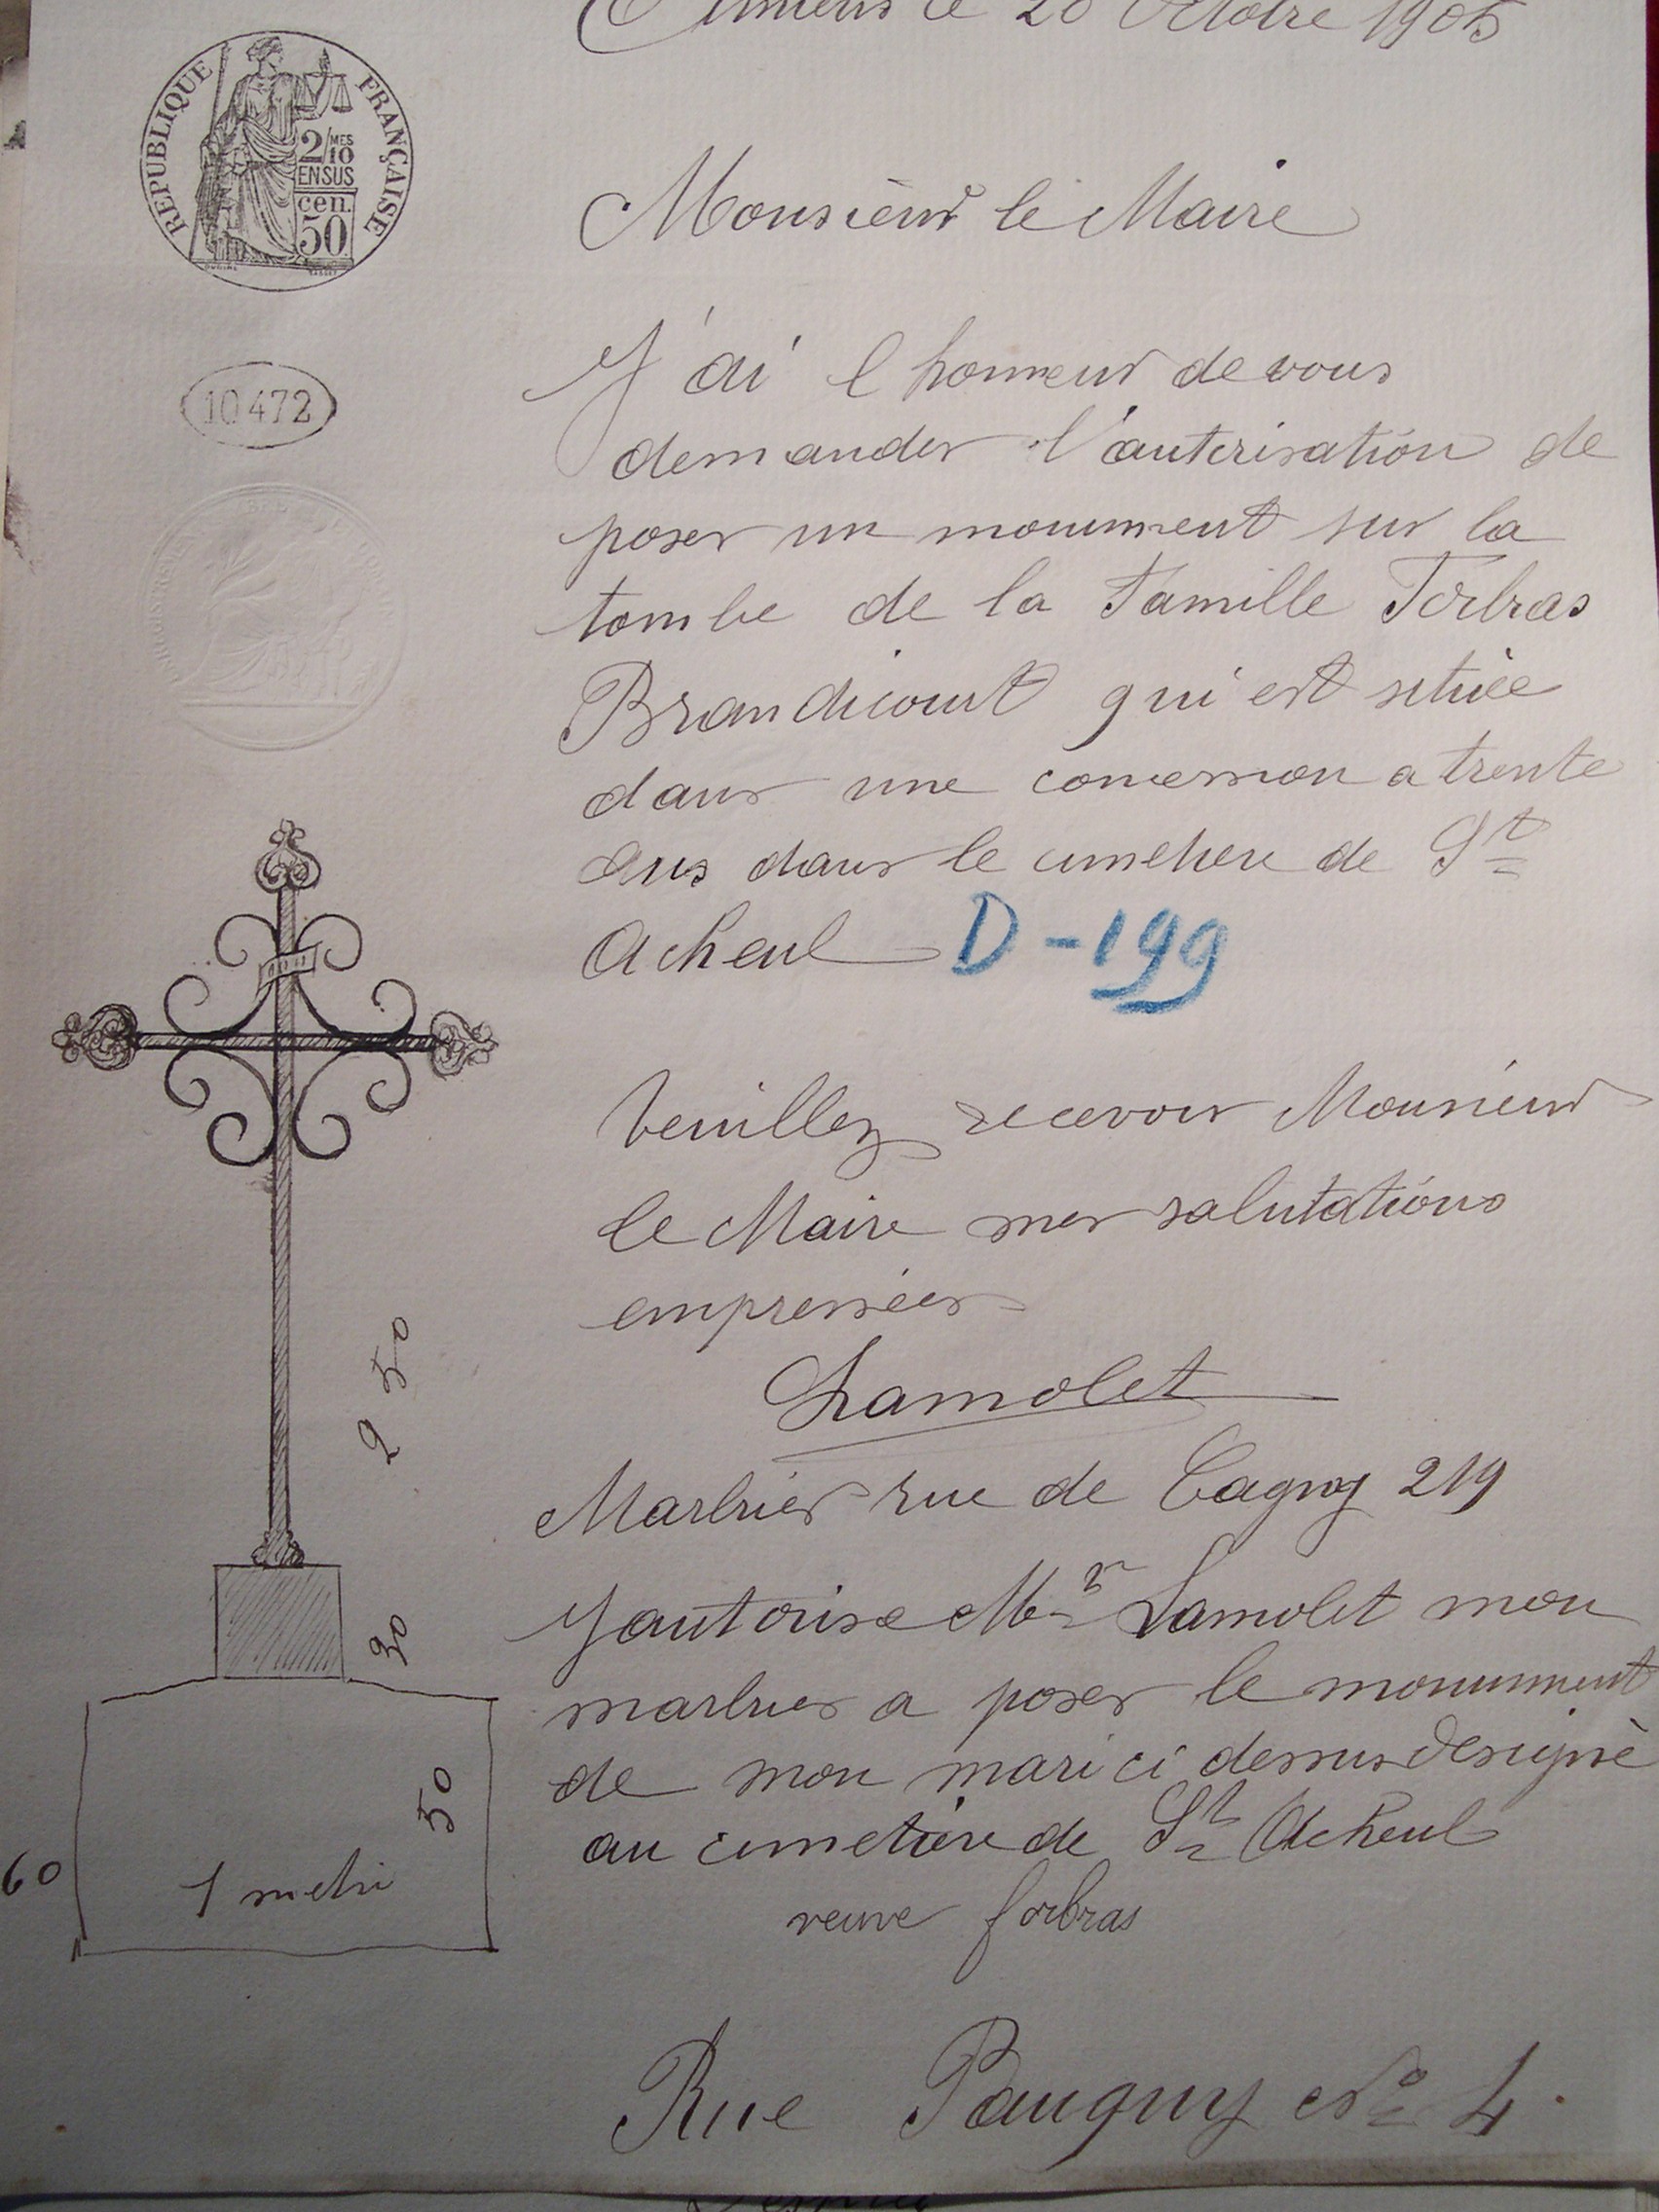 Amiens le 20 Octobre 1905
REPUBLIQUE FRANÇAISE
2/MES
10
EN SUS
cen.
50
10472
Monsieur le Maire
J'ai l honneur de vous
demander l'autorisation de
poser un monument sur la
tombe de la Famille Forbras
Brandicourt qui est située
dans une concession a trente
ans dans le cimetiere de St
Acheul D-199
Veuillez recevoir Monsieur
le Maire mes salutations
empressées
Lamolet
Marbrier rue de Cagny 219
J autorise Mr Lamolet mon
marbrier a poser le monument
de mon mari ci dessus designè
au cimetière de St Acheul
veuve forbras
Rue Paugny No 4
2 50
30
50
60
1 metre